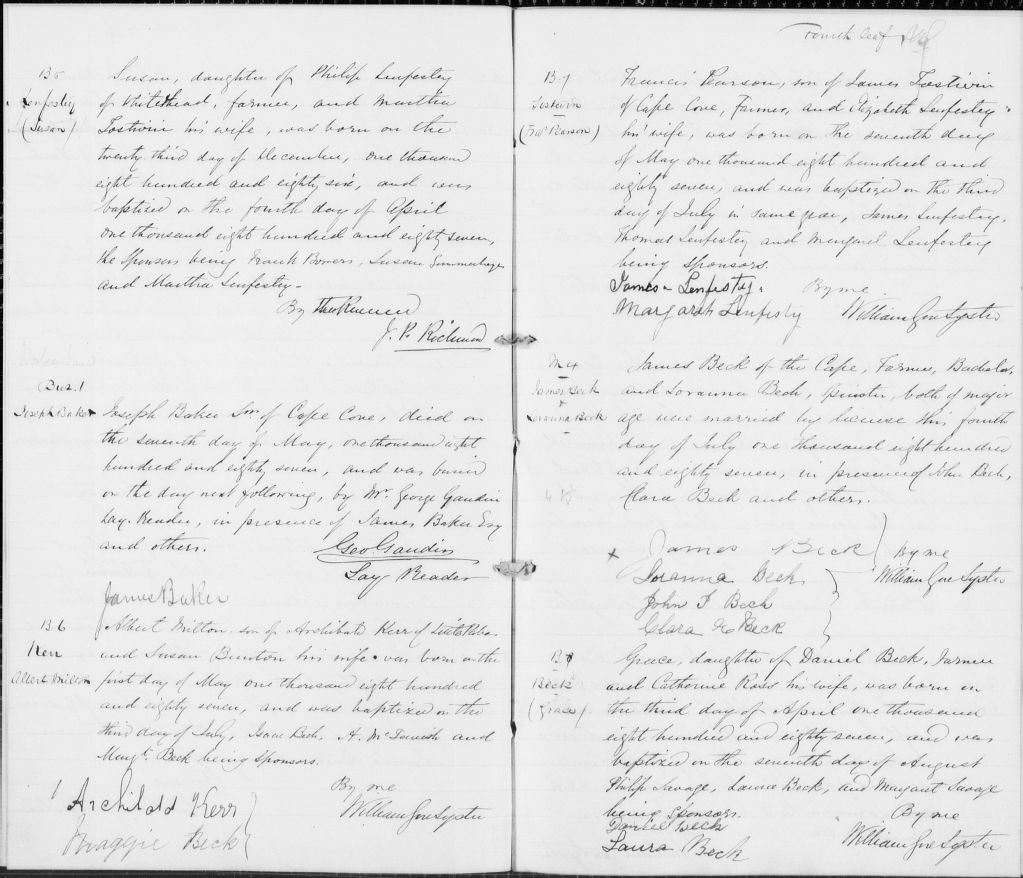 B 5
Lenfestey
(Susan)
Susan, daughter of Philip Lenfestey
of Whitehead, farmer, and Martha
Tostivin his wife, was born on the
twenty third day of December, one thousand
eight hundred and eighty six, and was
baptized on the fourth day of April
one thousand eight hundred and eighty seven,
the Sponsors being Frank Bowers, Susan
and Martha Lenfestey.
By
J. P. Richmond
Bur. 1
Joseph Baker
Joseph Baker Snr of Cape Cove, died on
the seventh day of May, one thousand eight
hundred and eighty seven, and was buried
on the day next following, by Mr. George Gaudin
Lay Reader, in presence of James Baker Esq
and others.
Geo Gaudin
Lay Reader
James Baker
B 6
Kerr
Albert Milton
Albert Milton son of Archibald Kerr of
and Susan Bunton his wife was born on the
first day of May one thousand eight hundred
and eighty seven, and was baptized on the
third day of July, Isaac Beck. A. McDavish and
Margt. Beck being Sponsors.
By me
William Gore Lyster
Archibald Kerr
Maggie Beck
Fourth leaf
B 7
Tostivin
(Frs Pearson)
Francis Pearson, son of James Tostivin
of Cape Cove, Farmer, and Elizabeth Lenfestey
his wife, was born on the seventh day
of May one thousand eight hundred and
eighty seven, and was baptized on the third
day of July in same year, James Lenfestey,
Thomas Lenfestey and Margaret Lenfestey
being Sponsors.
James Lenfestey. By me
Margarah Lenfesty William Gore Lyster
M 4
James Beck
Loranna Beck
James Beck of the Cape, Farmer, Bachelor,
and Loranna Beck, spinster, both of major
age were married by license this fourth
day of July one thousand eight hundred
and eighty seven, in presence of John Beck,
Clara Beck and others.
x James Beck By me
Loranna Beck William Gore Lyster
John T Beck
Clara E Beck
B 8
Beck
(Grace)
Grace, daughter of Daniel Beck, Farmer
and Catherine Ross his wife, was born on
the third day of April one thousand
eight hundred and eighty seven, and was
baptized on the seventh day of August
Philip Savage, Laura Beck, and Margaret Savage
being Sponsors. By me
Daniel Beck
Laura Beck William Gore Lyster